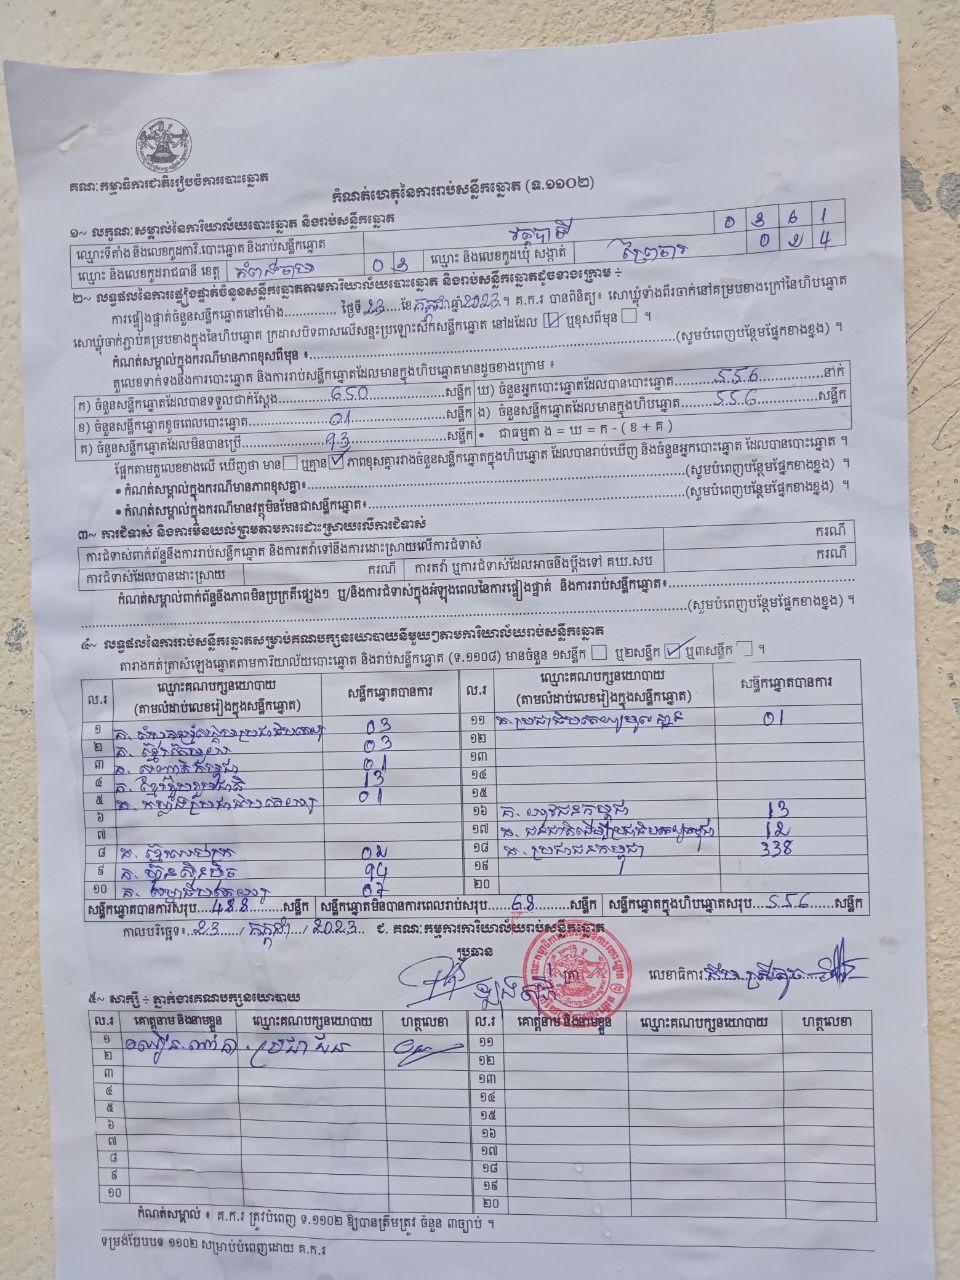 គណៈកម្មាធិការជាតិរៀបចំការបោះឆ្នោត
កំណត់ហេតុនៃការរាប់សន្លឹកឆ្នោត (ទ.១១០២)
១~ លក្ខណៈសម្គាល់នៃការិយាល័យបោះឆ្នោត និងរាប់សន្លឹកឆ្នោត
ឈ្មោះទីតាំង និងលេខកូដការិ.បោះឆ្នោត និងរាប់សន្លឹកឆ្នោត 0361
ឈ្មោះ និងលេខកូដរាជធានី ខេត្ត កំពង់ចាម 03 ឈ្មោះ និងលេខកូដឃុំ សង្កាត់ ព្រៃចារ 024
២~ លទ្ធផលនៃការផ្ទៀងផ្ទាត់ចំនួនសន្លឹកឆ្នោតតាមការិយាល័យបោះឆ្នោត និងរាប់សន្លឹកឆ្នោតដូចខាងក្រោម ÷
ការផ្ទៀងផ្ទាត់ចំនួនសន្លឹកឆ្នោតនៅម៉ោង.............. ថ្ងៃទី 23 ខែ កក្កដា ឆ្នាំ 2023 ។ គ.ក.រ បានពិនិត្យ៖ សោឃ្លុំទាំងពីរចាក់នៅគម្របខាងក្រៅនៃហិបឆ្នោត
សោឃ្លុំចាក់ភ្ជាប់គម្របខាងក្នុងនៃហិបឆ្នោត ក្រដាសបិទពាសលើសន្ទះប្រឡោះស៊កសន្លឹកឆ្នោត នៅដដែល ឬខុសពីមុន ។
កំណត់សម្គាល់ក្នុងករណីមានភាពខុសពីមុន ៖ (សូមបំពេញបន្ថែមផ្នែកខាងខ្នង) ។
តួលេខទាក់ទងនឹងការបោះឆ្នោត និងការរាប់សន្លឹកឆ្នោតដែលមានក្នុងហិបឆ្នោតមានដូចខាងក្រោម ៖
ក) ចំនួនសន្លឹកឆ្នោតដែលបានទទួលជាក់ស្តែង 650 សន្លឹក ឃ) ចំនួនអ្នកបោះឆ្នោតដែលបានបោះឆ្នោត 556 នាក់
ខ) ចំនួនសន្លឹកឆ្នោតខូចពេលបោះឆ្នោត 01 សន្លឹក ង) ចំនួនសន្លឹកឆ្នោតដែលមានក្នុងហិបឆ្នោត 556 សន្លឹក
គ) ចំនួនសន្លឹកឆ្នោតដែលមិនបានប្រើ 93 សន្លឹក • ជាធម្មតា ង = ឃ = ក - ( ខ + គ )
ផ្អែកតាមតួលេខខាងលើ ឃើញថា មាន ឬគ្មាន ភាពខុសគ្នារវាងចំនួនសន្លឹកឆ្នោតក្នុងហិបឆ្នោត ដែលបានរាប់ឃើញ និងចំនួនអ្នកបោះឆ្នោត ដែលបានបោះឆ្នោត ។
• កំណត់សម្គាល់ក្នុងករណីមានភាពខុសគ្នា៖ (សូមបំពេញបន្ថែមផ្នែកខាងខ្នង) ។
• កំណត់សម្គាល់ក្នុងករណីមានវត្ថុមិនមែនជាសន្លឹកឆ្នោត៖ (សូមបំពេញបន្ថែមផ្នែកខាងខ្នង) ។
៣~ ការជំទាស់ និងការមិនយល់ព្រមតាមការដោះស្រាយលើការជំទាស់
ការជំទាស់ពាក់ព័ន្ធនឹងការរាប់សន្លឹកឆ្នោត និងការតវ៉ាទៅនឹងការដោះស្រាយលើការជំទាស់ ករណី
ការជំទាស់ដែលបានដោះស្រាយ ករណី ការតវ៉ា ឬការជំទាស់ដែលអាចនឹងប្តឹងទៅ គឃ.សប ករណី
កំណត់សម្គាល់ពាក់ព័ន្ធនឹងភាពមិនប្រក្រតីផ្សេងៗ ឬ/និងការជំទាស់ក្នុងអំឡុងពេលនៃការផ្ទៀងផ្ទាត់ និងការរាប់សន្លឹកឆ្នោត៖
(សូមបំពេញបន្ថែមផ្នែកខាងខ្នង) ។
៤~ លទ្ធផលនៃការរាប់សន្លឹកឆ្នោតសម្រាប់គណបក្សនយោបាយនីមួយៗតាមការិយាល័យរាប់សន្លឹកឆ្នោត
តារាងកត់ត្រាសំឡេងឆ្នោតតាមការិយាល័យបោះឆ្នោត និងរាប់សន្លឹកឆ្នោត (ទ.១១០៨) មានចំនួន ១សន្លឹក ឬ២សន្លឹក ឬ៣សន្លឹក ។
ល.រ ឈ្មោះគណបក្សនយោបាយ (តាមលំដាប់លេខរៀងក្នុងសន្លឹកឆ្នោត) សន្លឹកឆ្នោតបានការ ល.រ ឈ្មោះគណបក្សនយោបាយ (តាមលំដាប់លេខរៀងក្នុងសន្លឹកឆ្នោត) សន្លឹកឆ្នោតបានការ
១ 03 ១១ 01
២ 03 ១២
៣ គ. 01 ១៣
៤ គ. ខ្មែររួបរួមជាតិ 13 ១៤
៥ គ. កម្លាំងប្រជាធិបតេយ្យ 01 ១៥
៦ ១៦ គ. យុវជនកម្ពុជា 13
៧ ១៧ 12
៨ គ. 02 ១៨ គ. ប្រជាជនកម្ពុជា 338
៩ គ. ហ្វ៊ុនស៊ិនប៉ិច 94 ១៩
១០ គ. 07 ២០
សន្លឹកឆ្នោតបានការសរុប 488 សន្លឹក សន្លឹកឆ្នោតមិនបានការពេលរាប់សរុប 68 សន្លឹក សន្លឹកឆ្នោតក្នុងហិបឆ្នោតសរុប 556 សន្លឹក
កាលបរិច្ឆេទ៖ 23 / កក្កដា / 2023 ជ. គណៈកម្មការការិយាល័យរាប់សន្លឹកឆ្នោត
ប្រធាន
ត្រា លេខាធិការ
៥~ សាក្សី ÷ ភ្នាក់ងារគណបក្សនយោបាយ
ល.រ គោត្តនាម និងនាមខ្លួន ឈ្មោះគណបក្សនយោបាយ ហត្ថលេខា ល.រ គោត្តនាម និងនាមខ្លួន ឈ្មោះគណបក្សនយោបាយ ហត្ថលេខា
១ ១១
២ ១២
៣ ១៣
៤ ១៤
៥ ១៥
៦ ១៦
៧ ១៧
៨ ១៨
៩ ១៩
១០ ២០
កំណត់សម្គាល់ ៖ គ.ក.រ ត្រូវបំពេញ ទ.១១០២ ឱ្យបានត្រឹមត្រូវ ចំនួន ៣ច្បាប់ ។
ទម្រង់បែបបទ ១១០២ សម្រាប់បំពេញដោយ គ.ក.រ